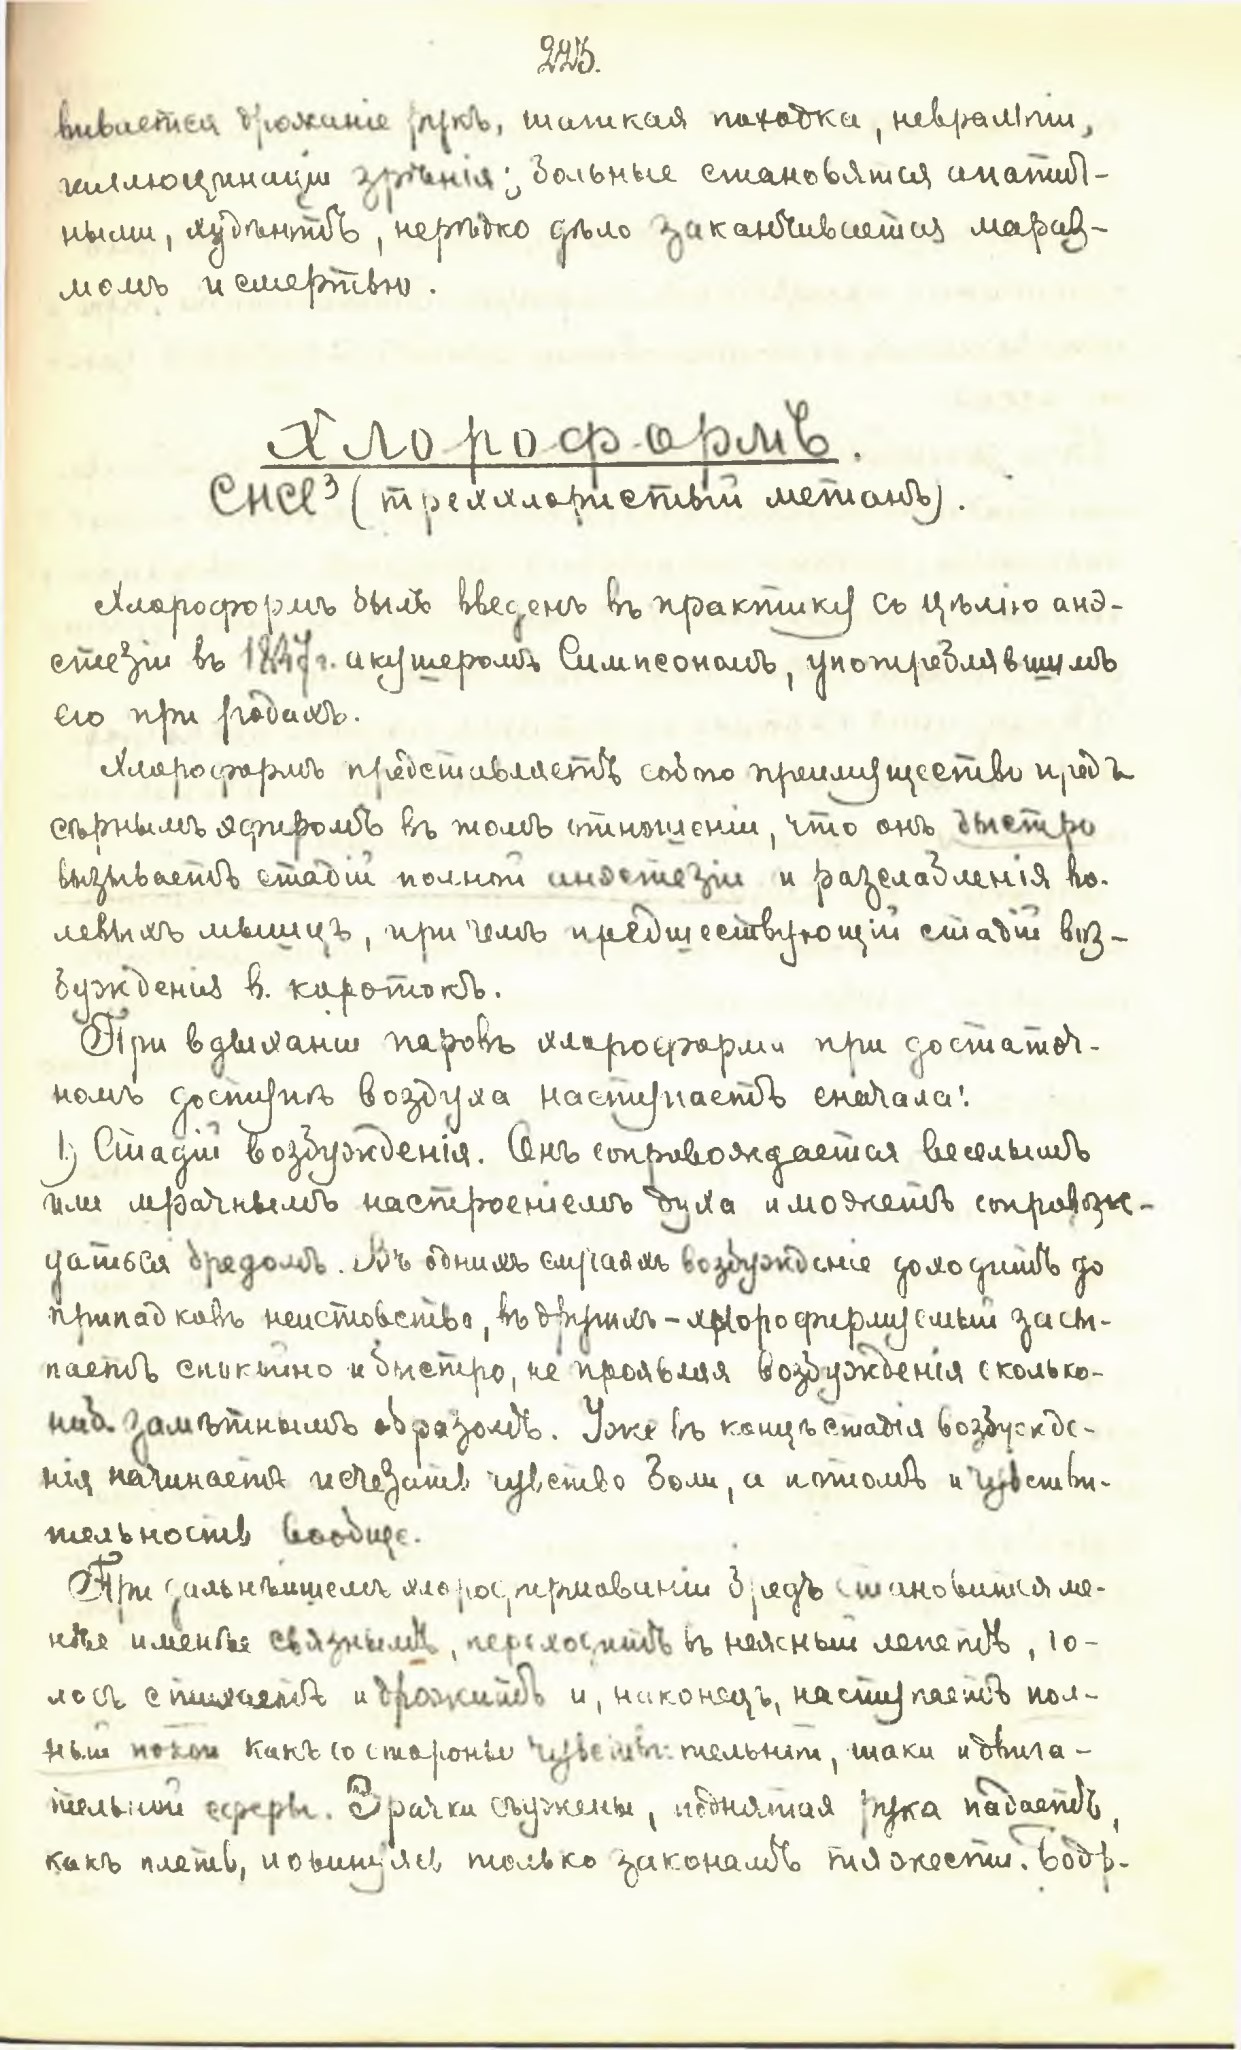 225.
вивается дрожаніе рукъ, шаткая походка, невралгіи,
галлюцинаціи зрѣнія; больные становятся апатич-
ными, худѣютъ, нерѣдко дѣло заканчивается мараз-
момъ и смертью.
Хлороформъ.
CHCl³ (треххлористый метанъ).
Хлороформъ былъ введенъ въ практику съ цѣлію анэ-
стезіи въ 1847г. акушеромъ Симпсономъ, употреблявшимъ
его при родахъ.
Хлороформъ представляетъ собою преимущество предъ
сѣрнымъ эфиромъ въ томъ отношеніи, что онъ быстро
вызываетъ стадій полной анэстезіи и разслабленія во-
левыхъ мышцъ, при чемъ предшествующій стадій воз-
бужденія в. коротокъ.
При вдыханіи паровъ хлороформа при достаточ-
номъ доступѣ воздуха наступаетъ сначала:
1) Стадій возбужденія. Онъ сопровождается веселымъ
или мрачнымъ настроеніемъ духа и можетъ сопровож-
даться бредомъ. Въ однихъ случаяхъ возбужденіе доходитъ до
припадковъ неистовства, въ другихъ – хлороформируемый засы-
паетъ спокойно и быстро, не проявляя возбужденія сколько-
ниб. замѣтнымъ образомъ. Уже въ концѣ стадія возбужде-
нія начинаетъ исчезать чувство боли, а потомъ и чувстви-
тельность вообще.
При дальнѣйшемъ хлороформированіи бредъ становится ме-
нѣе и менѣе связнымъ, переходитъ въ неясный лепетъ, го-
лосъ стихаетъ и дрожитъ и, наконецъ, наступаетъ пол-
ный покой какъ со стороны чувствительной, такъ и двига-
тельной сферы. Зрачки съужены, поднятая рука падаетъ,
какъ плеть, повинуясь только законамъ тяжести. Бодр-